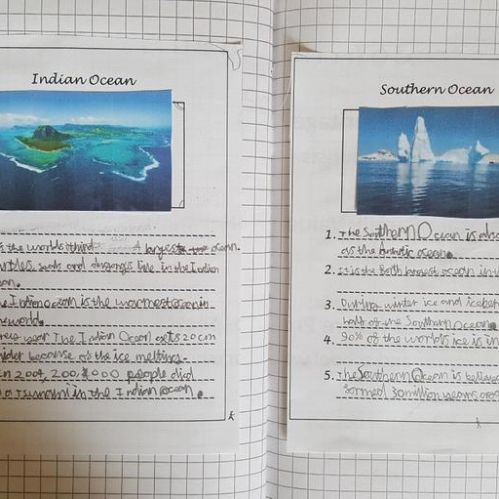 Indian Ocean
s the worlds third largest ocean.
seals and live in the Indian
ean.
he Indian Ocean is the warmest ocean in
he world.
year The Indian Ocean gets 20cm
wider because of the ice melting.
In 2004, 200,000 people died
Tsunami in the Indian Ocean.
Southern Ocean
1. The Southern Ocean is also
as the ocean.
2. It is the largest ocean in t
3. During winter ice and iceber
half of the Southern Ocean.
4. 90% of the worlds ice is in
5. The Southern Ocean is
formed 30 million years